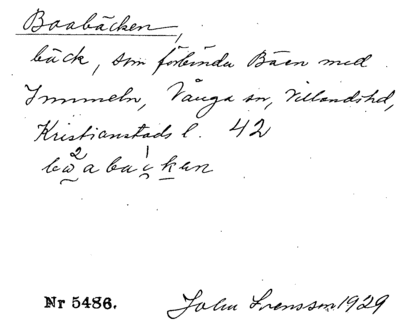 Boabäcken,
bäck, som förbinder Båen med
Immeln, Vånga sn, Villandshd,
Kristianstads l. 42
Nr 5486. John Svensson 1929